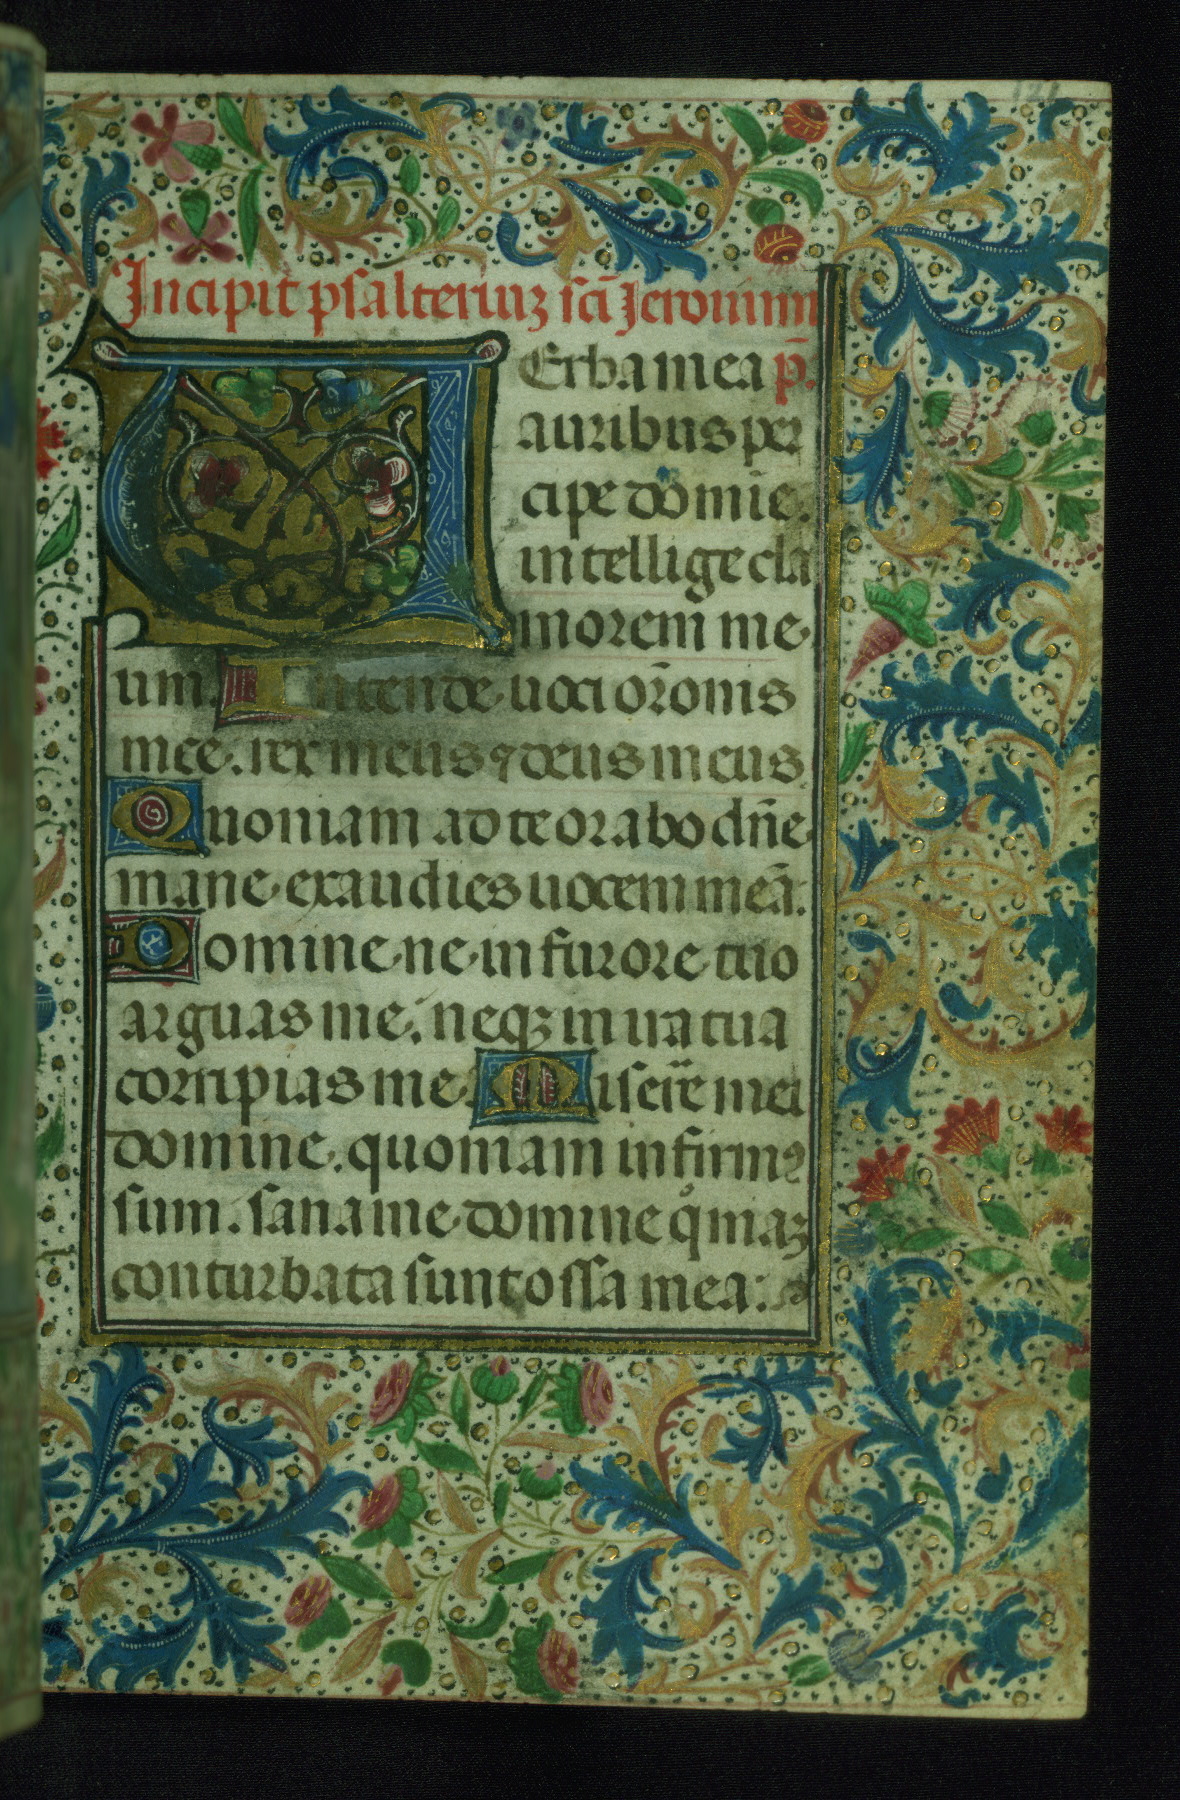 Incipit psalteriuz sci Jeronimi
VErba mea p̄.
auribus per
cipe domīe.
intellige cla
morem me
um. Intende uoci orōnis
mee. rex meus ⁊ deus meus
Quoniam ad te orabo dn̄e
mane exaudies uocem meā.
Domine ne in furore tuo
arguas me. neqꝫ in ira tua
corripias me. Miserē mei
domine. quoniam infirmꝰ
sum. sana me domine qm̄
conturbata sunt ossa mea: